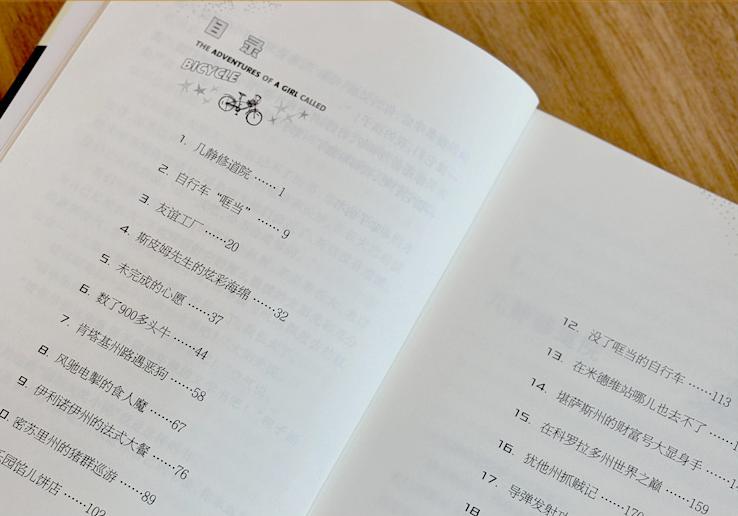 目 录
THE ADVENTURES OF A GIRL CALLED
BICYCLE
1. 几静修道院 …… 1
2. 自行车“哐当” …… 9
3. 友谊工厂 ……20
4. 斯皮姆先生的炫彩海绵 ……32
5. 未完成的心愿 ……37
6. 数了900多头牛 ……44
7. 肯塔基州路遇恶狗 ……58
8. 风驰电掣的食人魔 ……67
9. 伊利诺伊州的法式大餐 ……76
密苏里州的猪群巡游 ……89
乐园馅儿饼店 ……102
12. 没了哐当的自行车 ……113
13. 在米德维站哪儿也去不了 ……
14. 堪萨斯州的财富号大显身手 ……
15. 在科罗拉多州世界之巅 ……159
16. 犹他州抓贼记 ……
17. 导弹发射
18.